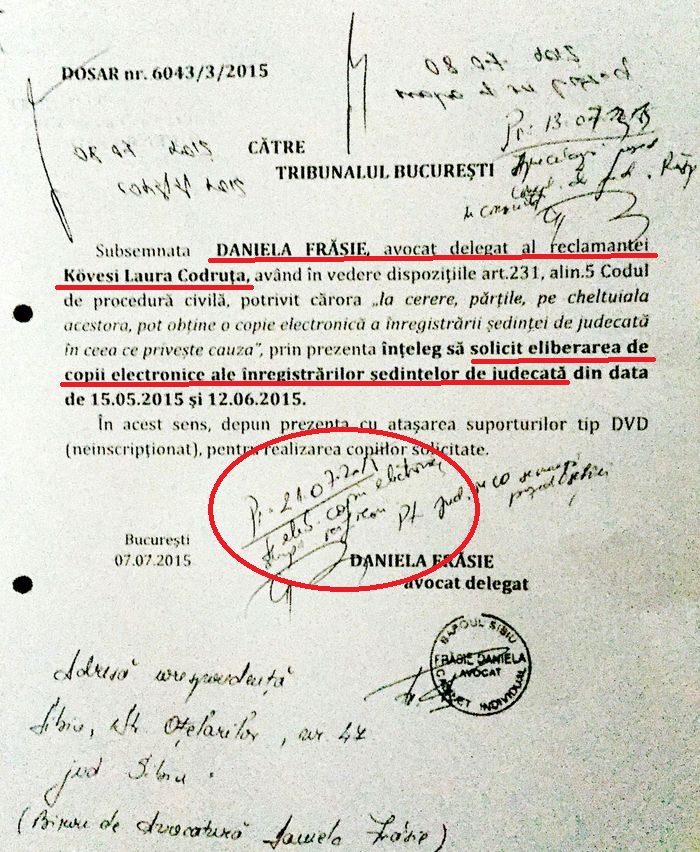 DOSAR nr. 6043/3/2015
08 07 2015
Pr. 13.07.2015
CĂTRE
TRIBUNALUL BUCUREŞTI
Subsemnata DANIELA FRĂSIE, avocat delegat al reclamantei
Kövesi Laura Codruţa, având în vedere dispoziţiile art.231, alin.5 Codul
de procedură civilă, potrivit cărora „la cerere, părţile, pe cheltuiala
acestora, pot obţine o copie electronică a înregistrării şedinţei de judecată
în ceea ce priveşte cauza", prin prezenta înţeleg să solicit eliberarea de
copii electronice ale înregistrărilor şedinţelor de judecată din data
de 15.05.2015 şi 12.06.2015.
În acest sens, depun prezenta cu ataşarea suporturilor tip DVD
(neinscripţionat), pentru realizarea copiilor solicitate.
Pr. 21.07.2015
elib. copii electronice
Bucureşti
07.07.2015
DANIELA FRĂSIE
avocat delegat
BAROUL SIBIU
FRĂSIE DANIELA
AVOCAT
CABINET INDIVIDUAL
Adresă corespondenţă
Sibiu, str. Oţelarilor, nr. 47
jud Sibiu.
(Birou de Avocatură Daniela Frăsie)